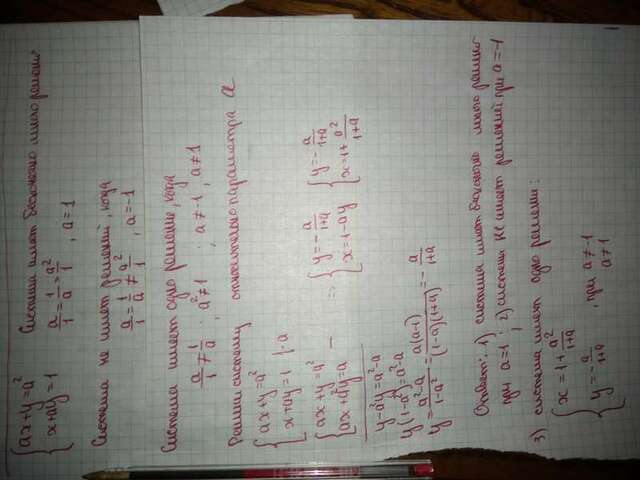 { ax+y=a²
{ x+ay=1
Система имеет бесконечно много решений
a/1 = 1/a = a²/1 , a=1
Система не имеет решений, когда
a/1 = 1/a ≠ a²/1 , a=-1
Система имеет одно решение, когда
a/1 ≠ 1/a , a²≠1 , a≠-1, a≠1
Решить систему относительно параметра a
{ ax+y=a²
{ x+ay=1 |·a
{ ax+y=a²
{ ax+a²y=a —
y-a²y=a²-a
y(1-a²)=a²-a
y= (a²-a)/(1-a²) = a(a-1)/((1-a)(1+a)) = - a/(1+a)
⇒ { y=- a/(1+a)
{ x=1-ay
{ y=- a/(1+a)
{ x=1+ a²/(1+a)
Ответ: 1) система имеет бесконечно много решений
при a=1 ; 2) система не имеет решений при a=-1
3) система имеет одно решение:
{ x=1+ a²/(1+a)
{ y=- a/(1+a) , при a≠-1
a≠1